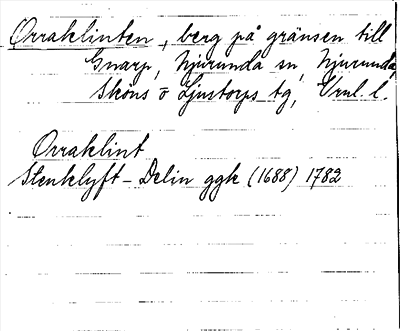 Orraklinten, berg på gränsen till
Gnarp, Njurunda sn, Njurunda,
Sköns o Ljustorps tg, Vrnl. l.
Orraklint
Stenklyft - Delin ggk (1688) 1782